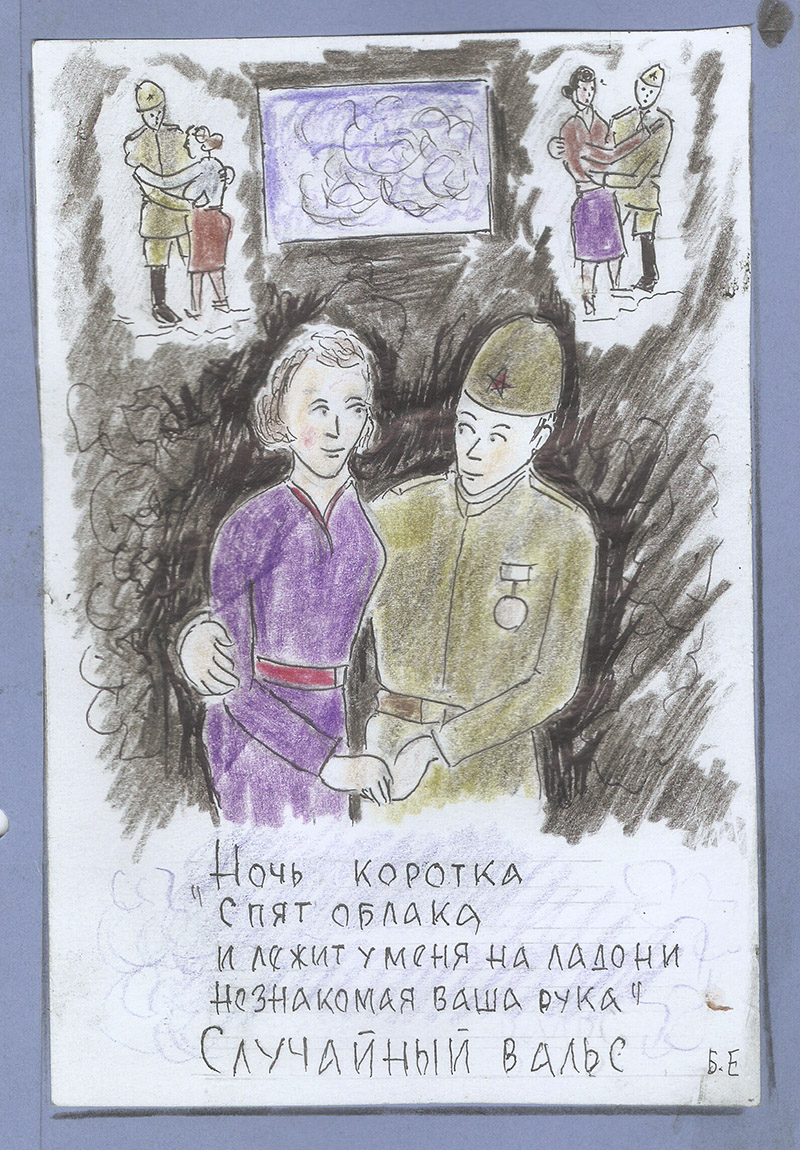 "Ночь коротка
спят облака,
и лежит у меня на ладони
незнакомая ваша рука"
Случайный вальс
Б.Е